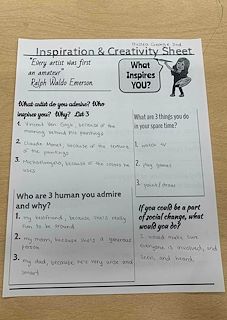 Inspiration & Creativity Sheet
"Every artist was first
an amateur"
Ralph Waldo Emerson
What
Inspires
YOU?
What artist do you admire? Who
inspires you? Why? List 3
1. Vincent Van Gogh, because of the
meaning behind his paintings
2. Claude Monet, because of the texture
of the paintings
3. Michelangelo, because of the colors he
uses
What are 3 things you do
in your spare time?
1. watch tv
2. play games
3. paint/draw
Who are 3 human you admire
and why?
1. my bestfriend, because she's really
fun to be around
2. my mom, because she's a generous
person
3. my dad, because he's very wise and
smart
If you could be a part
of social change, what
would you do?
I would make sure
everyone is involved, and
seen, and heard.